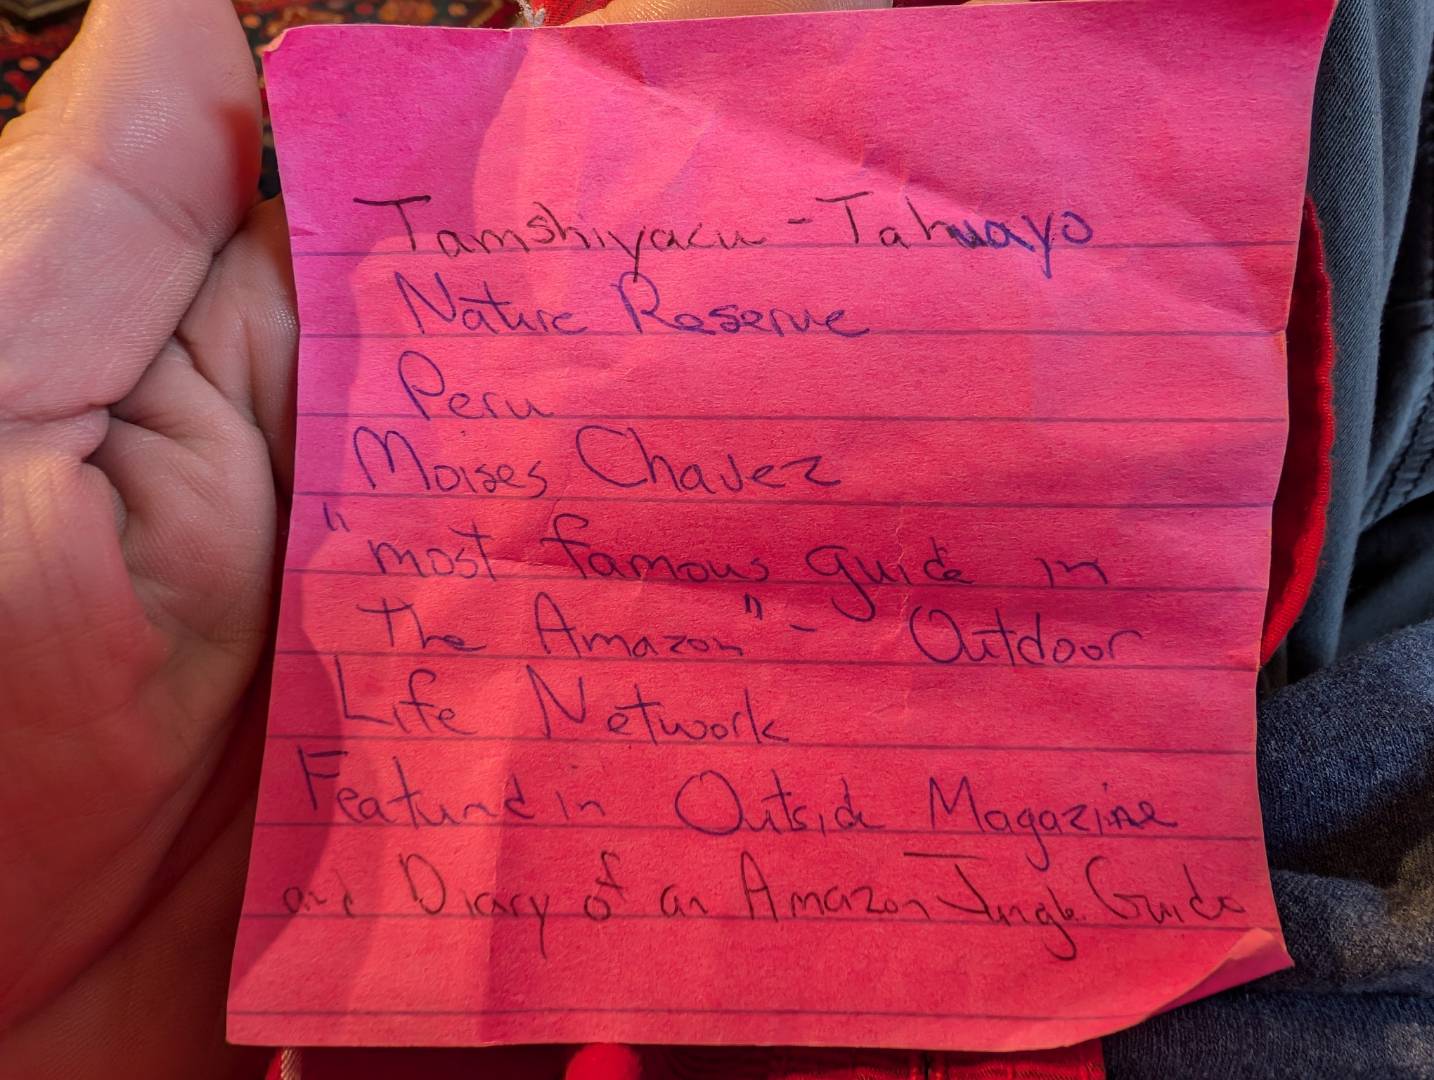 Tamshiyacu - Tahuayo
Nature Reserve
Peru
Moises Chavez
"most famous guide in
the Amazon" - Outdoor
Life Network
Featured in Outside Magazine
and Diary of an Amazon Jungle Guide